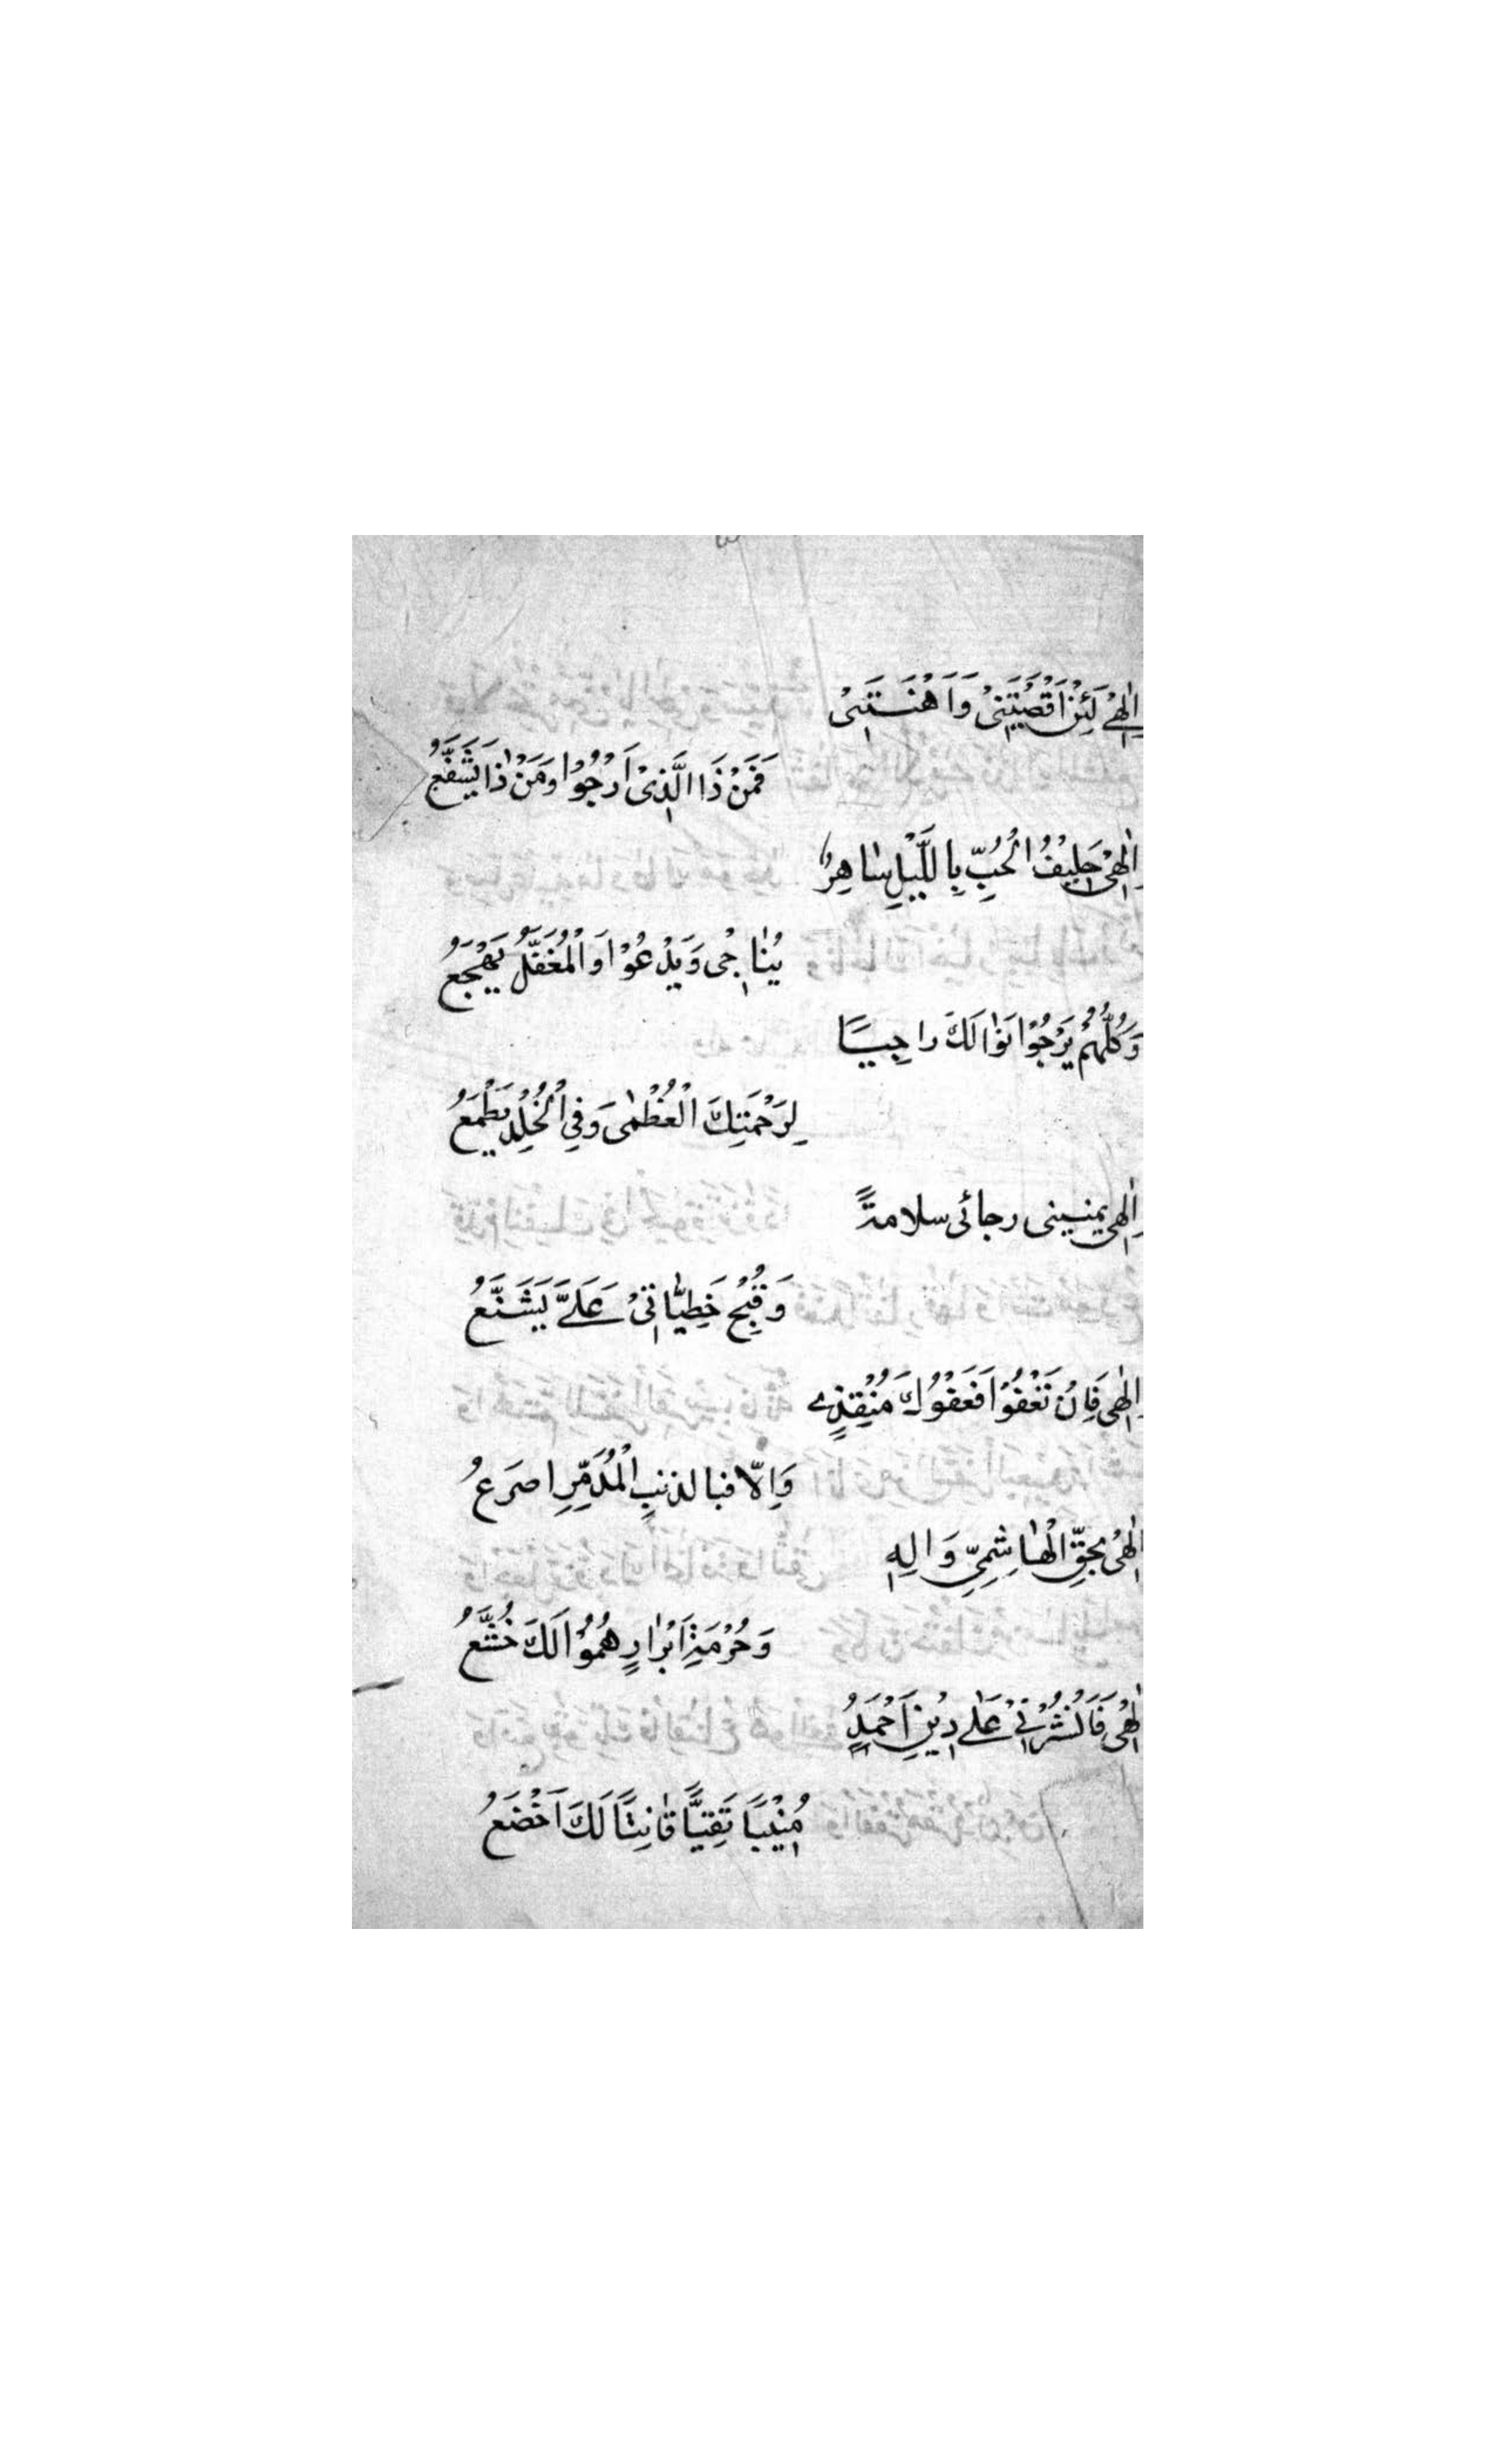 اِلٰهِىْ لَئِنْ اَقْصَيْتَنِىْ وَاَهَنْتَنِىْ
فَمَنْ ذَا الَّذِىْ اَرْجُوْا وَمَنْ ذَا يُشَفَّعُ
اِلٰهِىْ حَلِيْفُ الْحُبِّ بِاللَّيْلِ سَاهِرٌ
يُنَاجِىْ وَيَدْعُوْا وَالْمُغَفَّلُ يَهْجَعُ
وَكُلُّهُمْ يَرْجُوْا نَوَالَكَ رَاجِيًا
لِرَحْمَتِكَ الْعُظْمٰى وَفِى الْخُلْدِ يَطْمَعُ
اِلٰهِى يمنينى رجائى سلامةً
وَقُبْحُ خَطِيْاٰتِىْ عَلَىَّ يُشَنَّعُ
اِلٰهِى فَاِنْ تَعْفُوْا فَعَفْوُكَ مُنْقِذِى
وَاِلّا فبالذنبِ الْمُدَمِّرِ اصرعُ
اِلٰهِىْ بِحَقِّ الْهَاشِمِىِّ وَالِهٖ
وَحُرْمَةِ اَبْرَارٍ هُمُوْا لَكَ خُشَّعُ
اِلٰهِىْ فَانْشُرْنِىْ عَلٰى دِيْنِ اَحْمَدٍ
مُنِيْبًا تَقِيًّا قَانِتًا لَكَ اَخْضَعُ